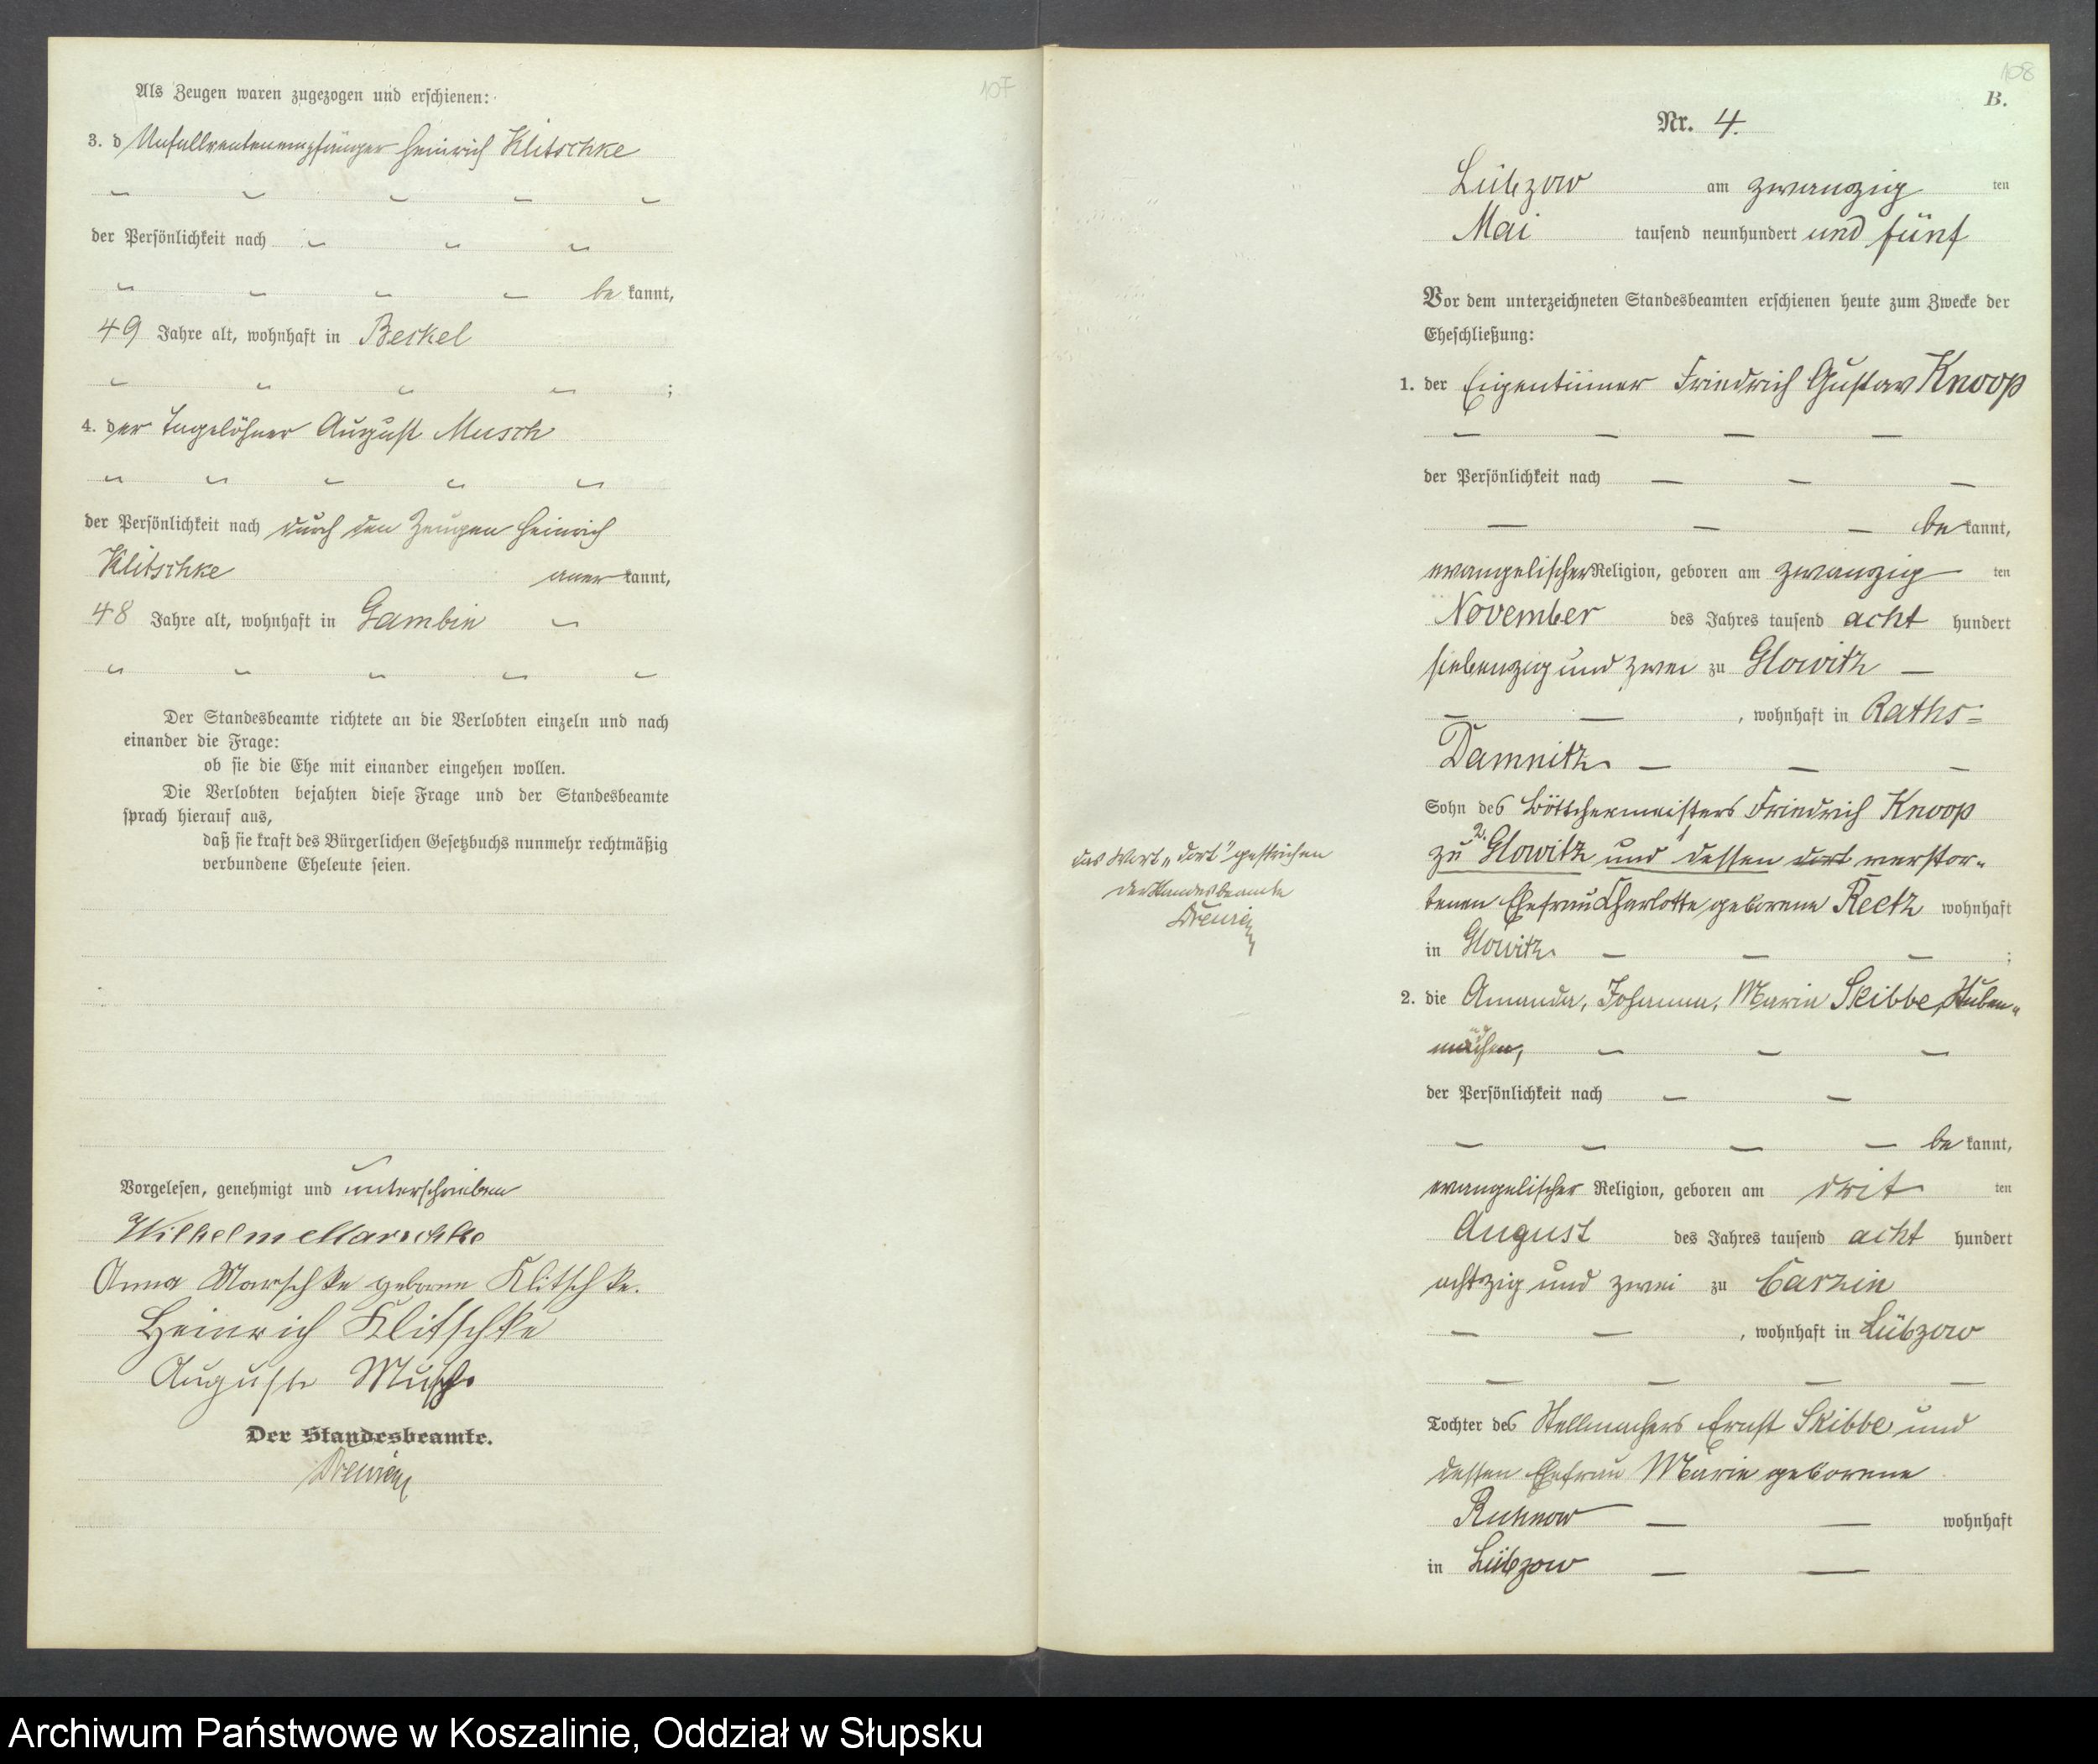 107
Als Zeugen waren zugezogen und erschienen:
3. d Unfallrentenempfänger Heinrich Klitschke
der Persönlichkeit nach
be kannt,
49 Jahre alt, wohnhaft in Beskel
;
4. der Tagelöhner August Musch
der Persönlichkeit nach durch den Zeugen Heinrich
Klitschke aner kannt,
48 Jahre alt, wohnhaft in Gambin
Der Standesbeamte richtete an die Verlobten einzeln und nach
einander die Frage:
ob sie die Ehe mit einander eingehen wollen.
Die Verlobten bejahten diese Frage und der Standesbeamte
sprach hierauf aus,
daß sie kraft des Bürgerlichen Gesetzbuchs nunmehr rechtmäßig
verbundene Eheleute seien.
Vorgelesen, genehmigt und unterschrieben
Wilhelm Marschke
Anna Marschke geborene Klitschke.
Heinrich Klitschke
August Musch
Der Standesbeamte.
108
B.
Nr. 4.
Lübzow am zwanzig ten
Mai tausend neunhundert und fünf
Vor dem unterzeichneten Standesbeamten erschienen heute zum Zwecke der
Eheschließung:
1. der Eigentümer Friedrich Gustav Knoop
der Persönlichkeit nach
be kannt,
evangelischer Religion, geboren am zwanzig ten
November des Jahres tausend acht hundert
siebenzig und zwei zu Glowitz
, wohnhaft in Raths=
Damnitz
Sohn des Böttchermeisters Friedrich Knoop
zu Glowitz und dessen dort verstor-
benen Ehefrau Charlotte geborene Reetz wohnhaft
in Glowitz ;
das Wort „dort" gestrichen
der Standesbeamte
2. die Amanda, Johanna, Marie Skibbe, Stuben-
mädchen,
der Persönlichkeit nach
be kannt,
evangelischer Religion, geboren am drit ten
August des Jahres tausend acht hundert
achtzig und zwei zu Carzin
, wohnhaft in Lübzow
Tochter des Stellmachers Ernst Skibbe und
dessen Ehefrau Marie geborene
Ruhnow wohnhaft
in Lübzow
Archiwum Państwowe w Koszalinie, Oddział w Słupsku